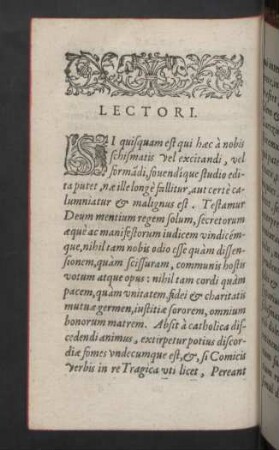 LECTORI.
SI quisquam est qui hæc à nobis
schismatis vel excitandi, vel
formãdi, fouendique studio edi-
ta putet, næ ille longè fallitur, aut certè ca-
lumniatur & malignus est. Testamur
Deum mentium regem solum, secretorum
æquè ac manifestorum iudicem vindicém-
que, nihil tam nobis odio esse quàm dissen-
sionem, quàm scissuram, communis hostis
votum atque opus: nihil tam cordi quàm
pacem, quàm vnitatem, fidei & charitatis
mutuæ germen, iustitiæ sororem, omnium
bonorum matrem. Absit à catholica dis-
cedendi animus, extirpetur potius discor-
diæ fomes vndecumque est, &, si Comicis
verbis in re Tragica vti licet, Pereant